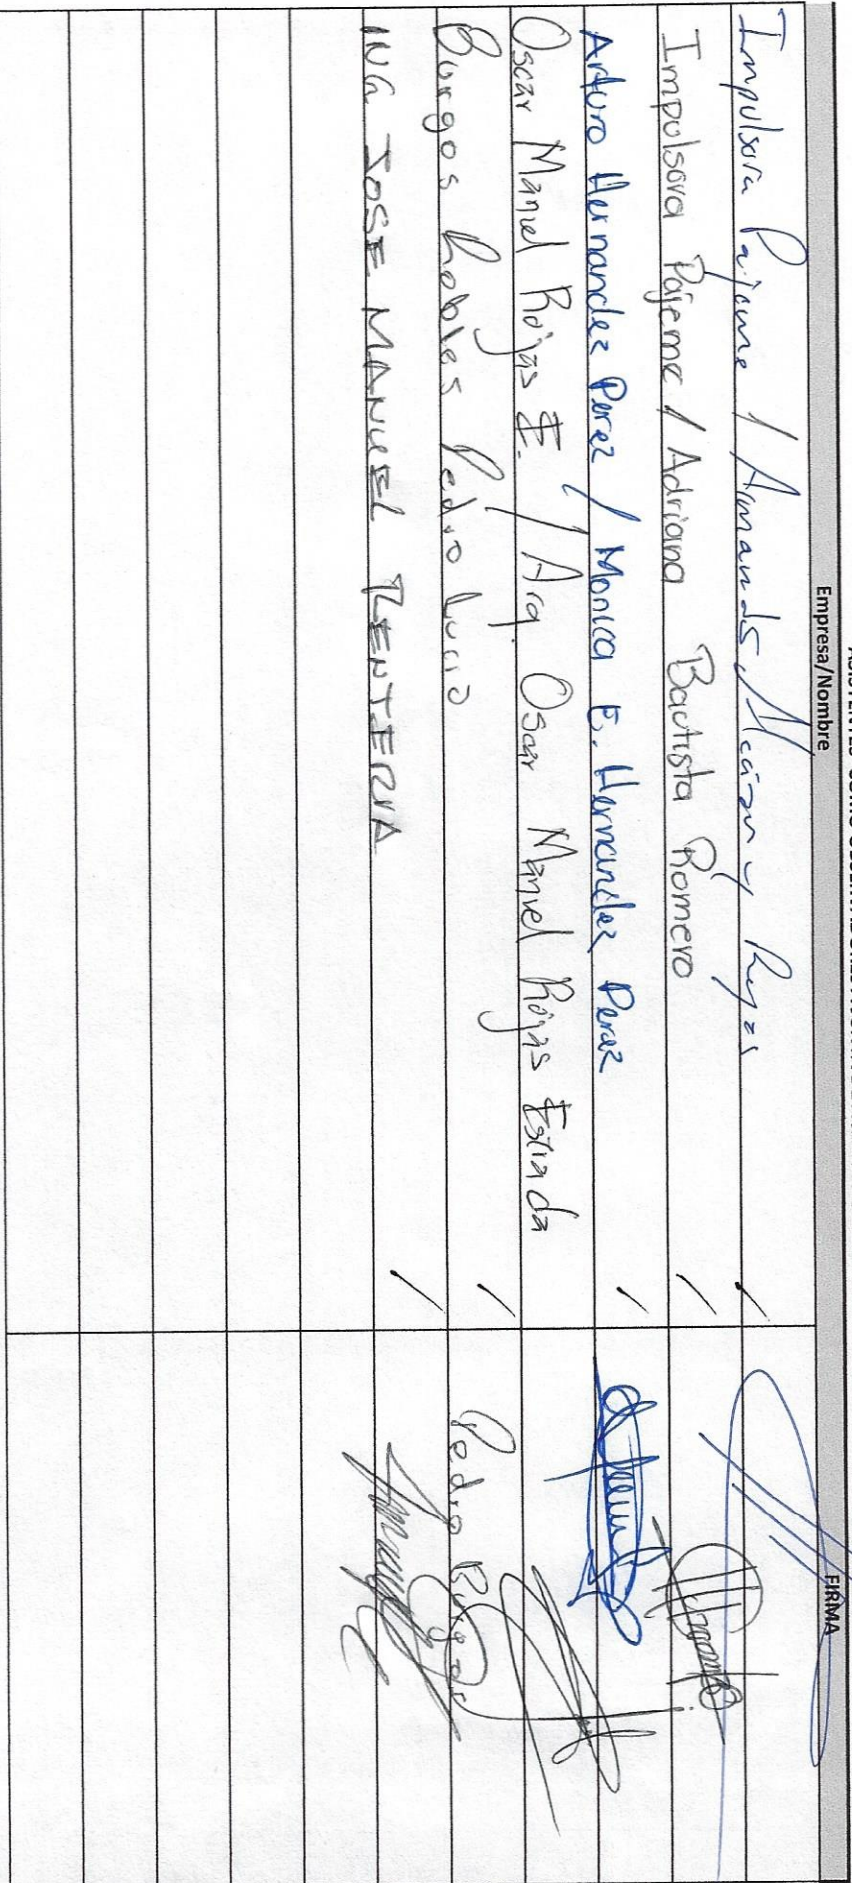 ASISTENTES COMO OBSERVADORES
Empresa/Nombre FIRMA
Impulsora Pajeme / Armando Alarcón y Reyes
Impulsora Pajeme / Adriana Bautista Romero
Arturo Hernandez Perez / Monica E. Hernandez Perez
Oscar Manuel Rojas E. / Arq Oscar Manuel Rojas Estrada
Burgos Robles Pedro Lucio Pedro Burgos
ING JOSE MANUEL RENTERIA